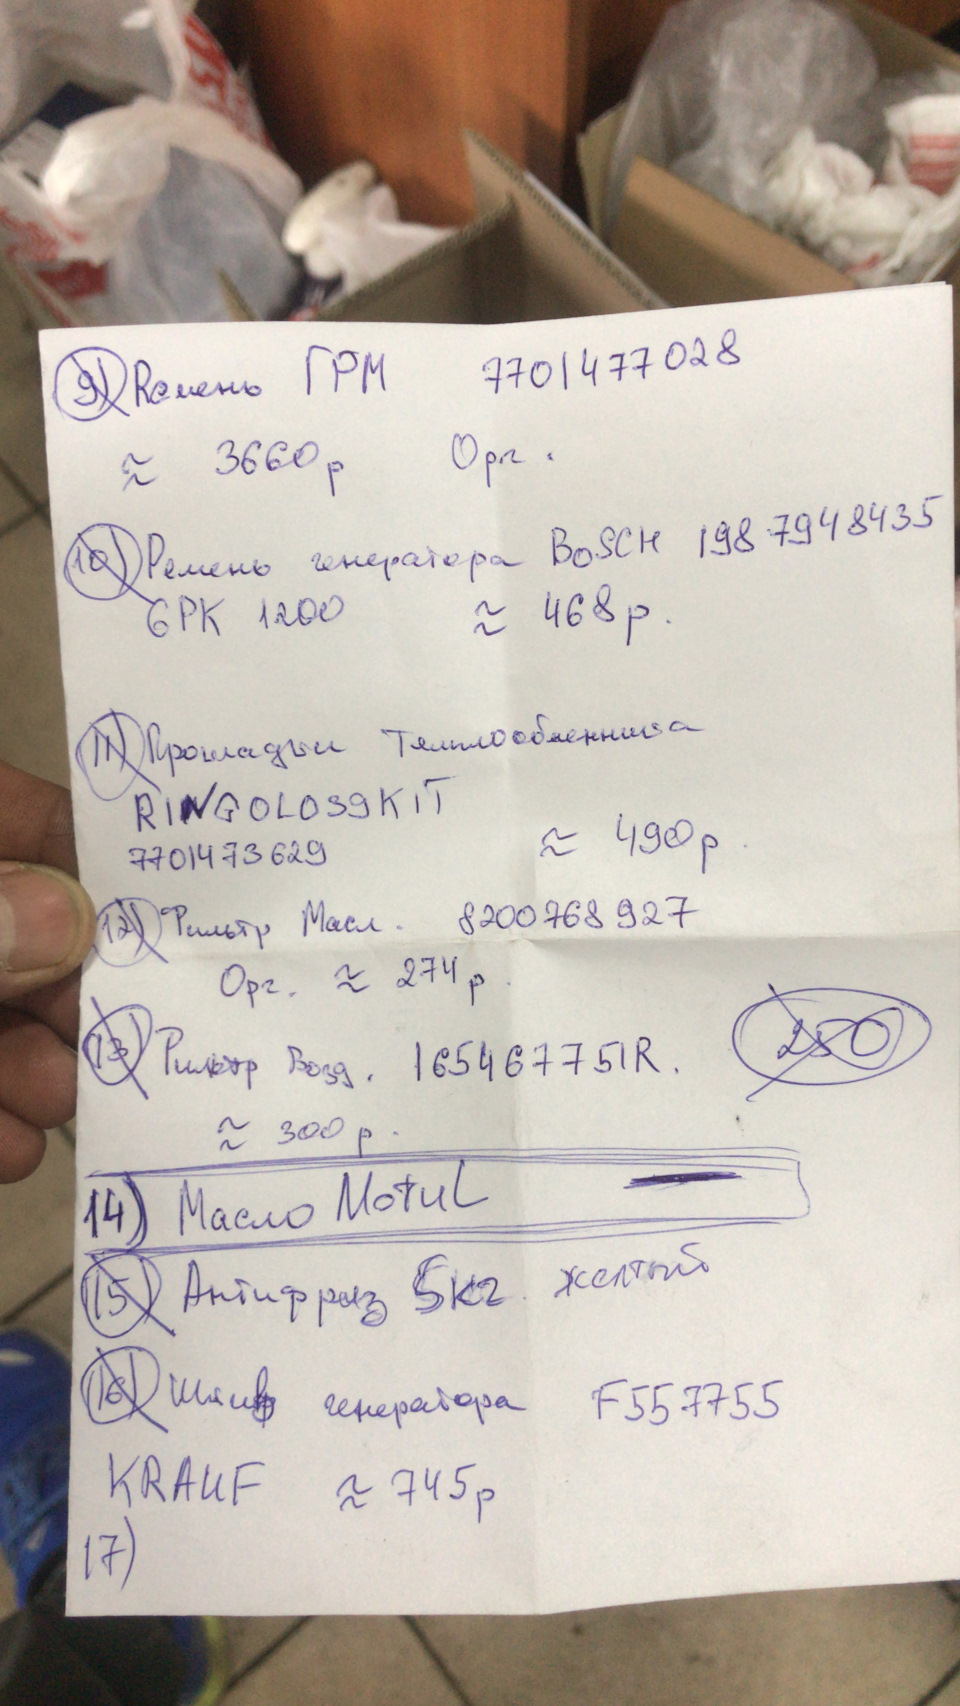 9) Ремень ГРМ 7701477028
≈ 3660р Орг.
10) Ремень генератора BOSCH 1987948435
6PK 1200 ≈ 468р.
11) Прокладки теплообменника
RINGOLO39KIT
7701473629 ≈ 490р.
12) Фильтр Масл. 8200768927
Орг. ≈ 274р.
13) Фильтр Возд. 165467751R. 250
≈ 300р.
14) Масло Motul
15) Антифриз 5кг желтый
16) Шкив генератора F557755
KRAUF ≈ 745р
17)